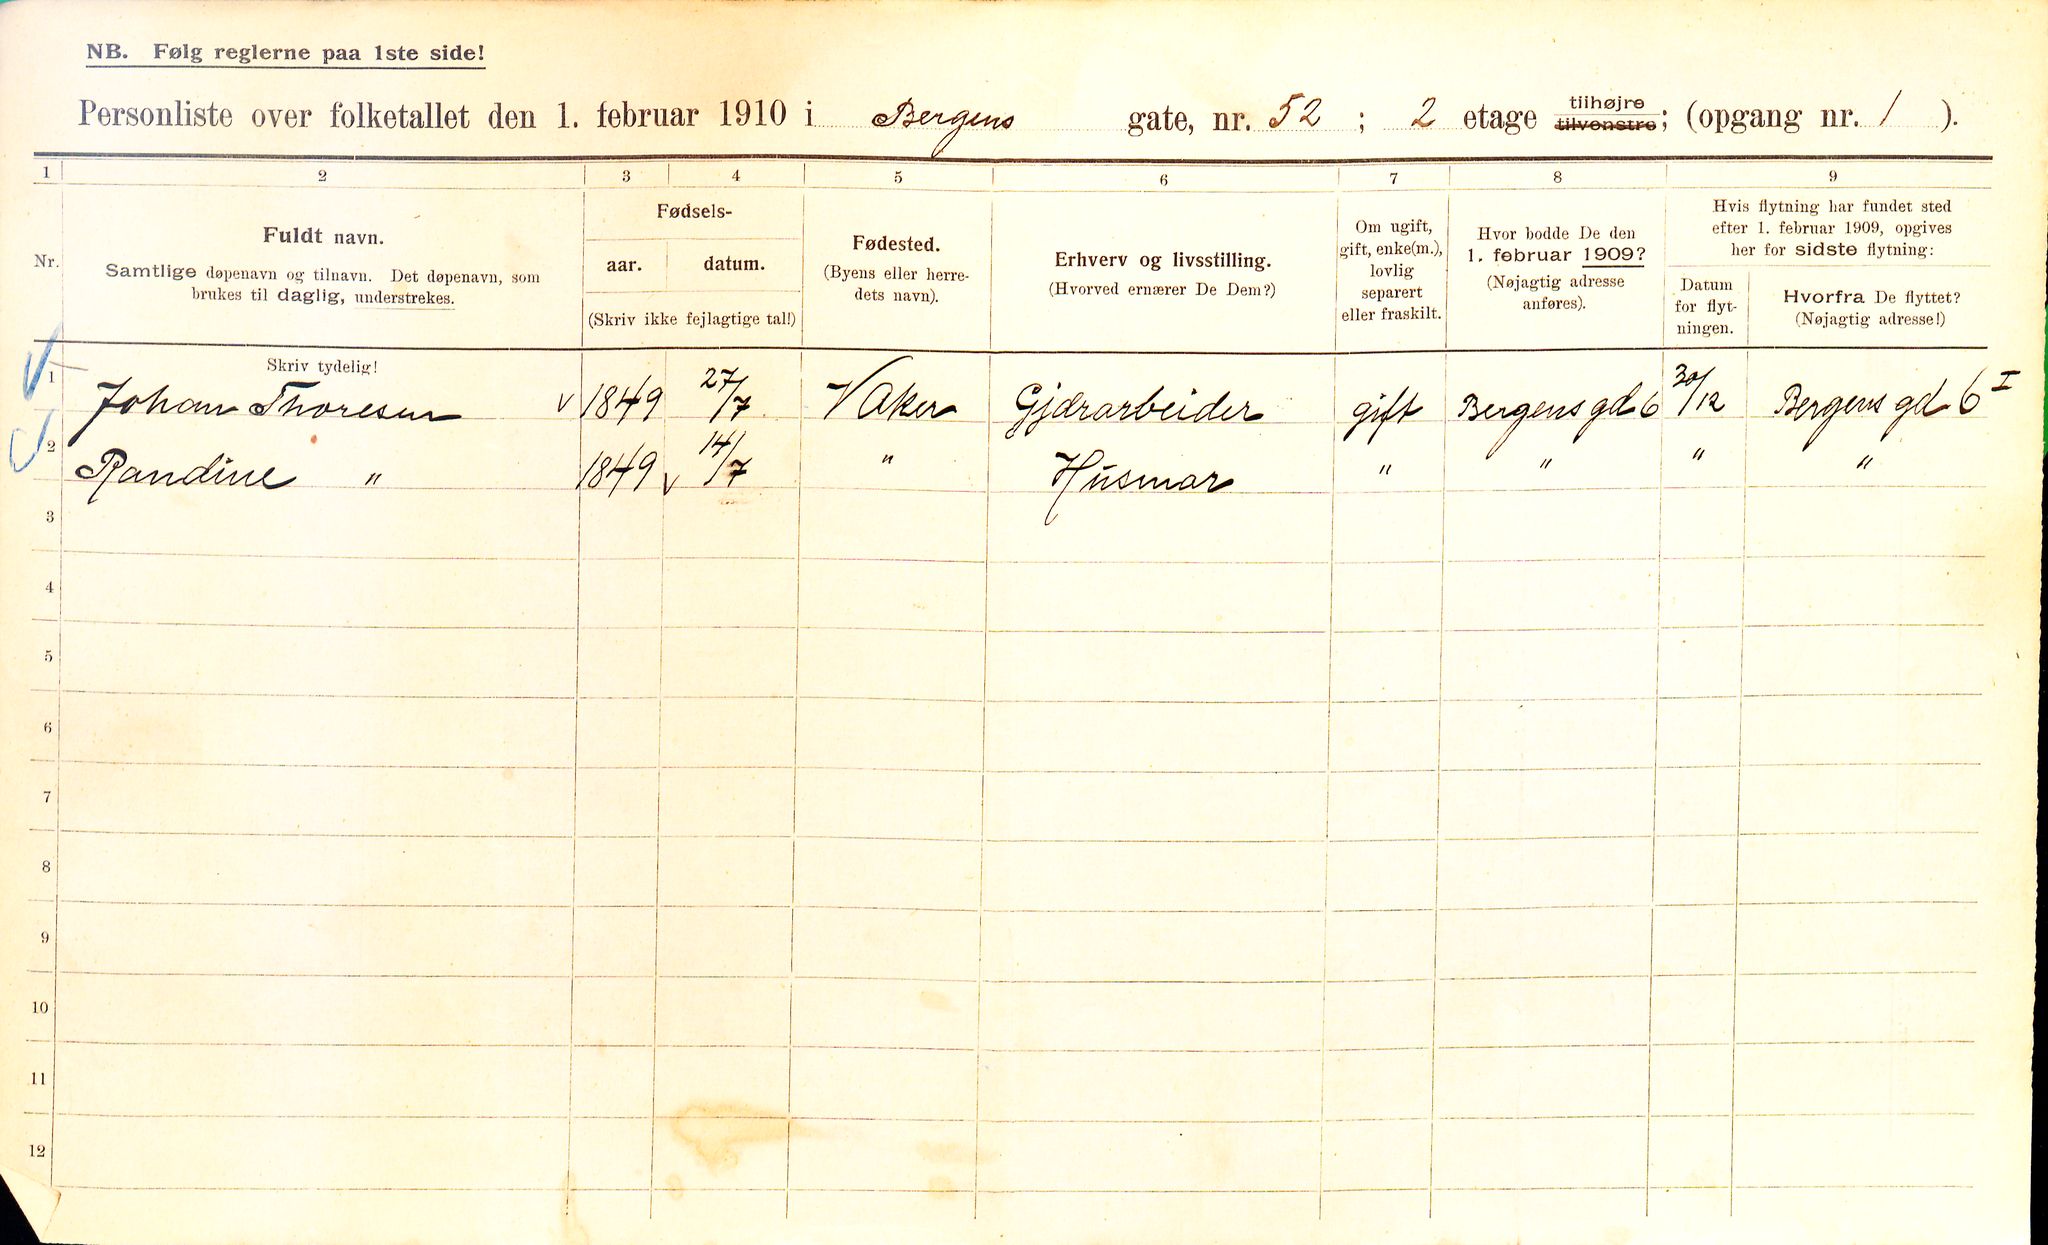 NB. Følg reglerne paa 1ste side!
Personliste over folketallet den 1. februar 1910 i Bergens gate, nr. 52 ; 2 etage tilhøjre tilvenstre; (opgang nr. 1 ).
1 2 3 4 5 6 7 8 9
Nr.
Fuldt navn.
Samtlige døpenavn og tilnavn. Det døpenavn, som
brukes til daglig, understrekes.
Fødsels-
aar. datum.
(Skriv ikke fejlagtige tal!)
Fødested.
(Byens eller herre-
dets navn).
Erhverv og livsstilling.
(Hvorved ernærer De Dem?)
Om ugift,
gift, enke(m.),
lovlig
separert
eller fraskilt.
Hvor bodde De den
1. februar 1909?
(Nøjagtig adresse
anføres).
Hvis flytning har fundet sted
efter 1. februar 1909, opgives
her for sidste flytning:
Datum
for flyt-
ningen.
Hvorfra De flyttet?
(Nøjagtig adresse!)
Skriv tydelig!
1 Johan Thoresen v 1849 27/7 V Aker Gjærarbeider gift Bergensgd 6 30/12 Bergens gd 6 I
2 Randine " 1849 v 14/7 " Husmor " " " "
3
4
5
6
7
8
9
10
11
12